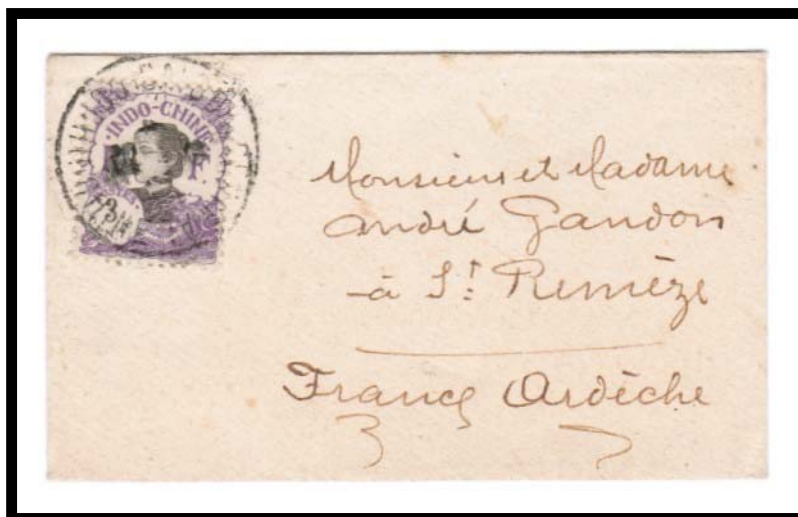 INDO-CHINE
RF
Monsieur et Madame
André Gandon
à St Remèze
France Ardèche